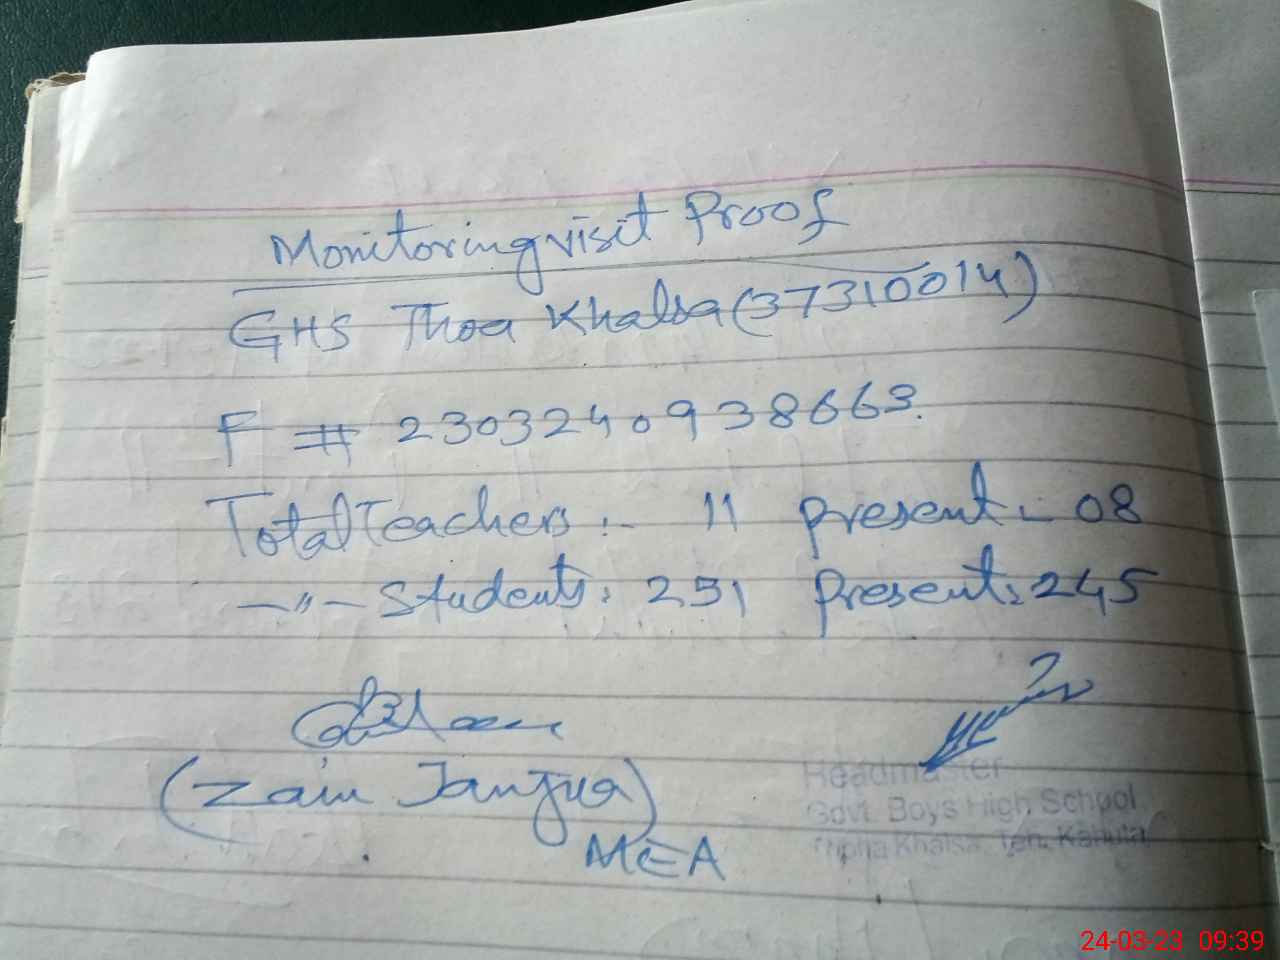 Monitoring visit Proof
GHS Thoa Khalsa (37310014)
F # 230324093 8663.
Total Teachers :- 11 Present :- 08
-〃- Students: 251 Present: 245
(Zain Janjua)
MEA
Headmaster
Govt. Boys High School
Khalsa, Teh. Kahuta
24-03-23 09:39